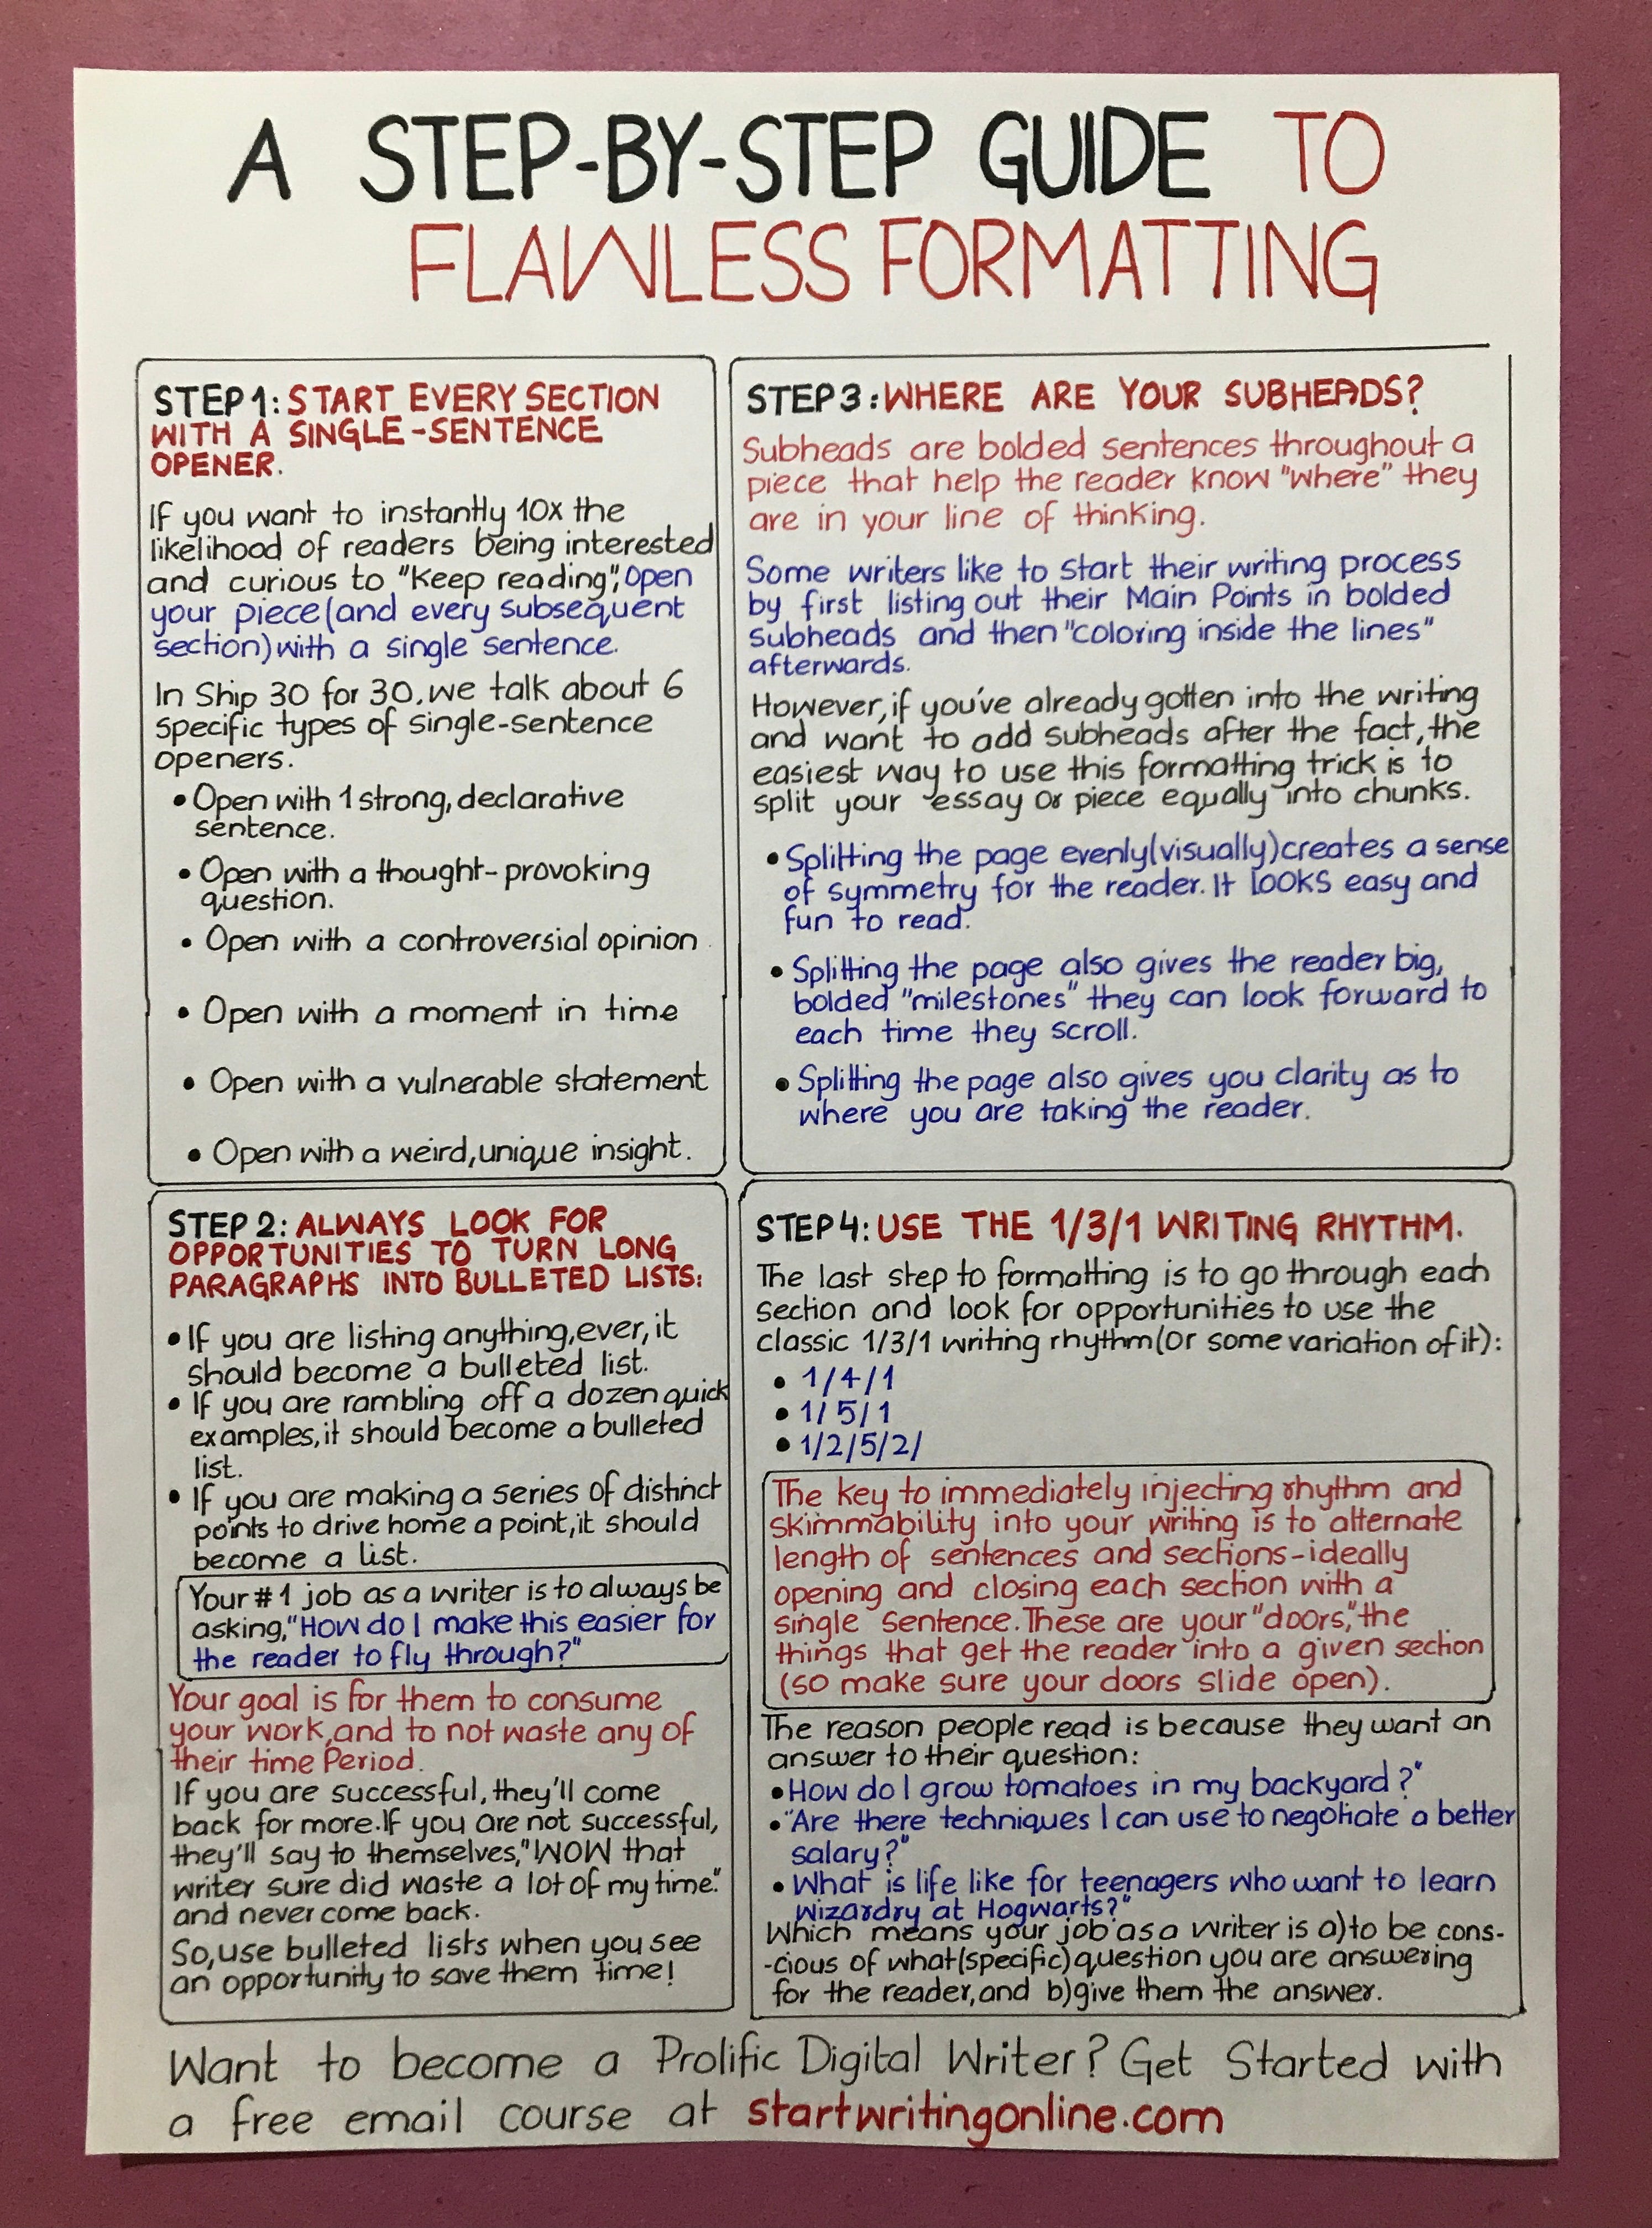 A STEP-BY-STEP GUIDE TO
FLAWLESS FORMATTING
STEP 1: START EVERY SECTION
WITH A SINGLE-SENTENCE
OPENER.
If you want to instantly 10x the
likelihood of readers being interested
and curious to "keep reading", open
your piece (and every subsequent
section) with a single sentence.
In Ship 30 for 30, we talk about 6
specific types of single-sentence
openers.
• Open with 1 strong, declarative
sentence.
• Open with a thought-provoking
question.
• Open with a controversial opinion
• Open with a moment in time
• Open with a vulnerable statement
• Open with a weird, unique insight.
STEP 2: ALWAYS LOOK FOR
OPPORTUNITIES TO TURN LONG
PARAGRAPHS INTO BULLETED LISTS:
• If you are listing anything, ever, it
should become a bulleted list.
• If you are rambling off a dozen quick
examples, it should become a bulleted
list.
• If you are making a series of distinct
points to drive home a point, it should
become a list.
Your #1 job as a writer is to always be
asking, "How do I make this easier for
the reader to fly through?"
Your goal is for them to consume
your work, and to not waste any of
their time Period.
If you are successful, they'll come
back for more. If you are not successful,
they'll say to themselves, "WOW that
writer sure did waste a lot of my time."
and never come back.
So, use bulleted lists when you see
an opportunity to save them time!
STEP 3: WHERE ARE YOUR SUBHEADS?
Subheads are bolded sentences throughout a
piece that help the reader know "where" they
are in your line of thinking.
Some writers like to start their writing process
by first listing out their Main Points in bolded
subheads and then "coloring inside the lines"
afterwards.
However, if you've already gotten into the writing
and want to add subheads after the fact, the
easiest way to use this formatting trick is to
split your essay or piece equally into chunks.
• Splitting the page evenly (visually) creates a sense
of symmetry for the reader. It looks easy and
fun to read.
• Splitting the page also gives the reader big,
bolded "milestones" they can look forward to
each time they scroll.
• Splitting the page also gives you clarity as to
where you are taking the reader.
STEP 4: USE THE 1/3/1 WRITING RHYTHM.
The last step to formatting is to go through each
section and look for opportunities to use the
classic 1/3/1 writing rhythm (or some variation of it):
• 1/4/1
• 1/5/1
• 1/2/5/2/
The key to immediately injecting rhythm and
skimmability into your writing is to alternate
length of sentences and sections-ideally
opening and closing each section with a
single sentence. These are your "doors," the
things that get the reader into a given section
(so make sure your doors slide open).
The reason people read is because they want an
answer to their question:
• How do I grow tomatoes in my backyard?"
• "Are there techniques I can use to negotiate a better
salary?"
• What is life like for teenagers who want to learn
wizardry at Hogwarts?"
Which means your job as a writer is a) to be cons-
-cious of what (specific) question you are answering
for the reader, and b) give them the answer.
Want to become a Prolific Digital Writer? Get Started with
a free email course at startwritingonline.com